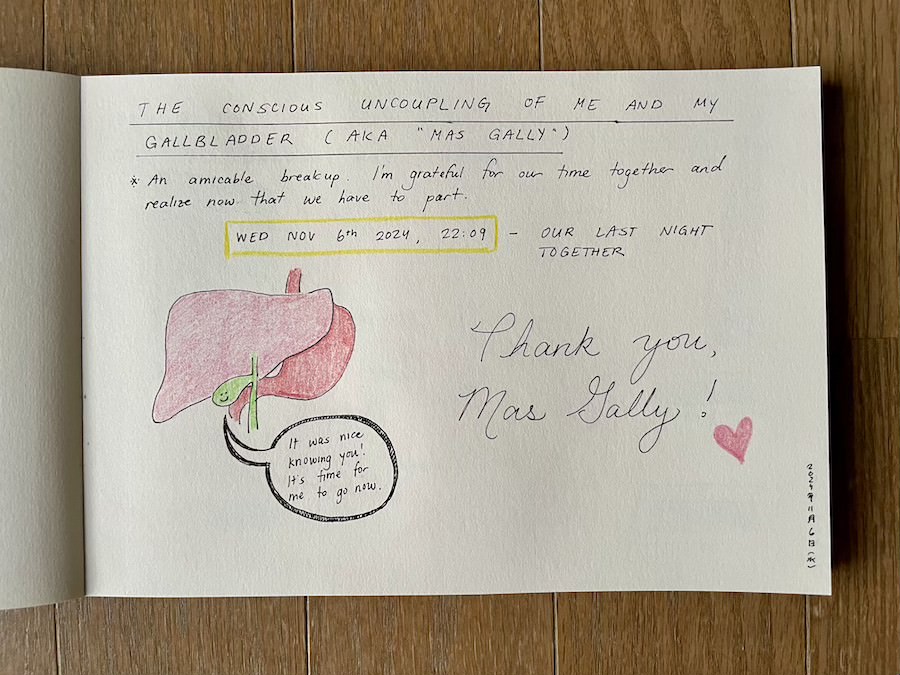 THE CONSCIOUS UNCOUPLING OF ME AND MY
GALLBLADDER (AKA "MAS GALLY")
* An amicable breakup. I'm grateful for our time together and
realize now that we have to part.
WED NOV 6th 2024, 22:09 - OUR LAST NIGHT
TOGETHER
Thank you,
Mas Gally!
It was nice
knowing you!
It's time for
me to go now.
2024年11月6日(水)